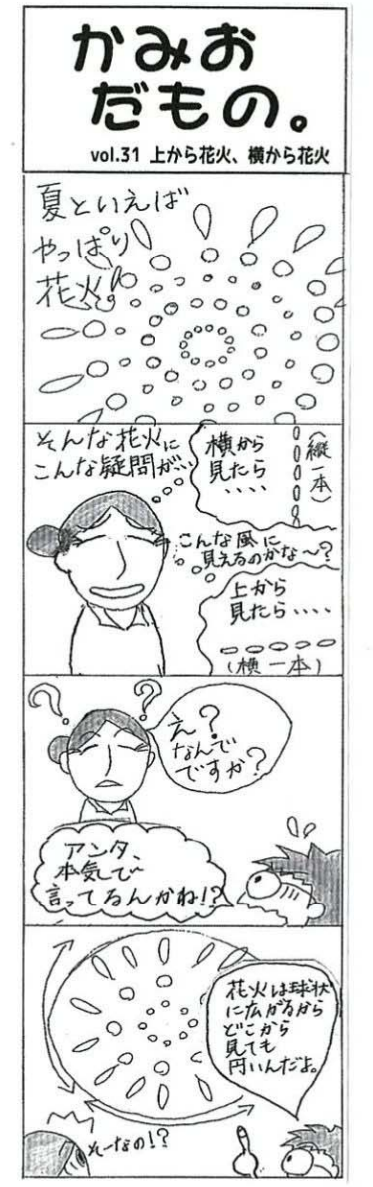 かみお
だもの。
vol.31 上から花火、横から花火
夏といえば
やっぱり
花火。
そんな花火に
こんな疑問が…
横から
見たら
‥‥
(縦一本)
こんな風に
見えるのかな〜?
上から
見たら‥‥
(横一本)
?
?
え?
なんで
ですか?
アンタ、
本気で
言ってるんかね!?
花火は球状
に広がるから
どこから
見ても
円いんだよ。
そーなの!?